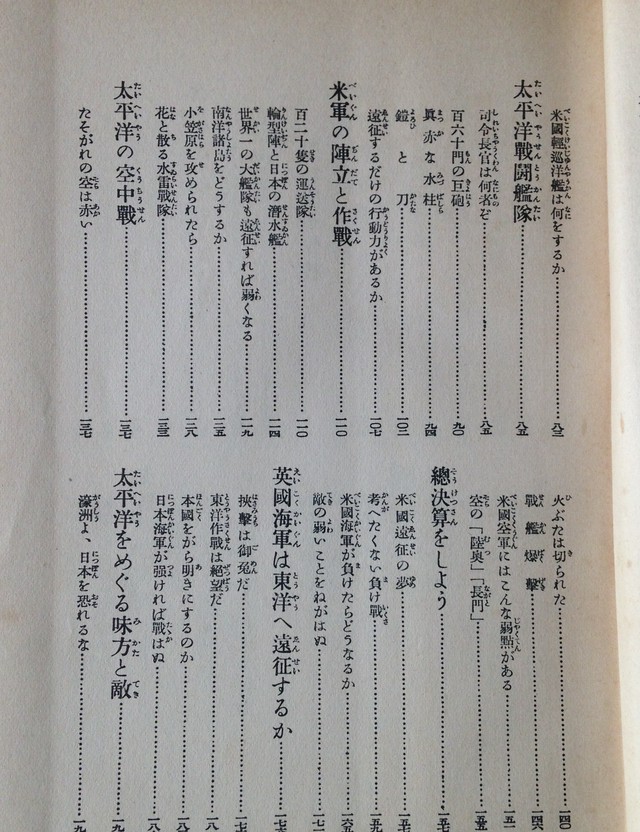 米國輕巡洋艦は何をするか……八三
太平洋戰鬪艦隊……八五
司令長官は何者ぞ……八五
百六十門の巨砲……九〇
眞赤な水柱……九四
鎧と刀……一〇三
遠征するだけの行動力があるか……一〇七
米軍の陣立と作戰……一一〇
百二十隻の運送隊……一一〇
輪型陣と日本の潜水艦……一一四
世界一の大艦隊も遠征すれば弱くなる……一一九
南洋諸島をどうするか……一二五
小笠原を攻められたら……一二八
花と散る水雷戰隊……一三三
太平洋の空中戰……一三七
たそがれの空は赤い……一三七
火ぶたは切られた……一四〇
戰艦爆擊……一四六
米國空軍にはこんな弱點がある……一五一
空の「陸奥」「長門」……一五五
總決算をしよう……一五七
米國遠征の夢……一五七
考へたくない負け戰……一五九
米國海軍が負けたらどうなるか……一六五
敵の弱いことをねがはぬ……一七二
英國海軍は東洋へ遠征するか……一七六
挾擊は御免だ……一七六
東洋作戰は絶望だ……一八
本國をがら明きにするのか……一八
日本海軍が强ければ戰はぬ……一八
太平洋をめぐる味方と敵……一九
濠洲よ、日本を恐れるな……一九